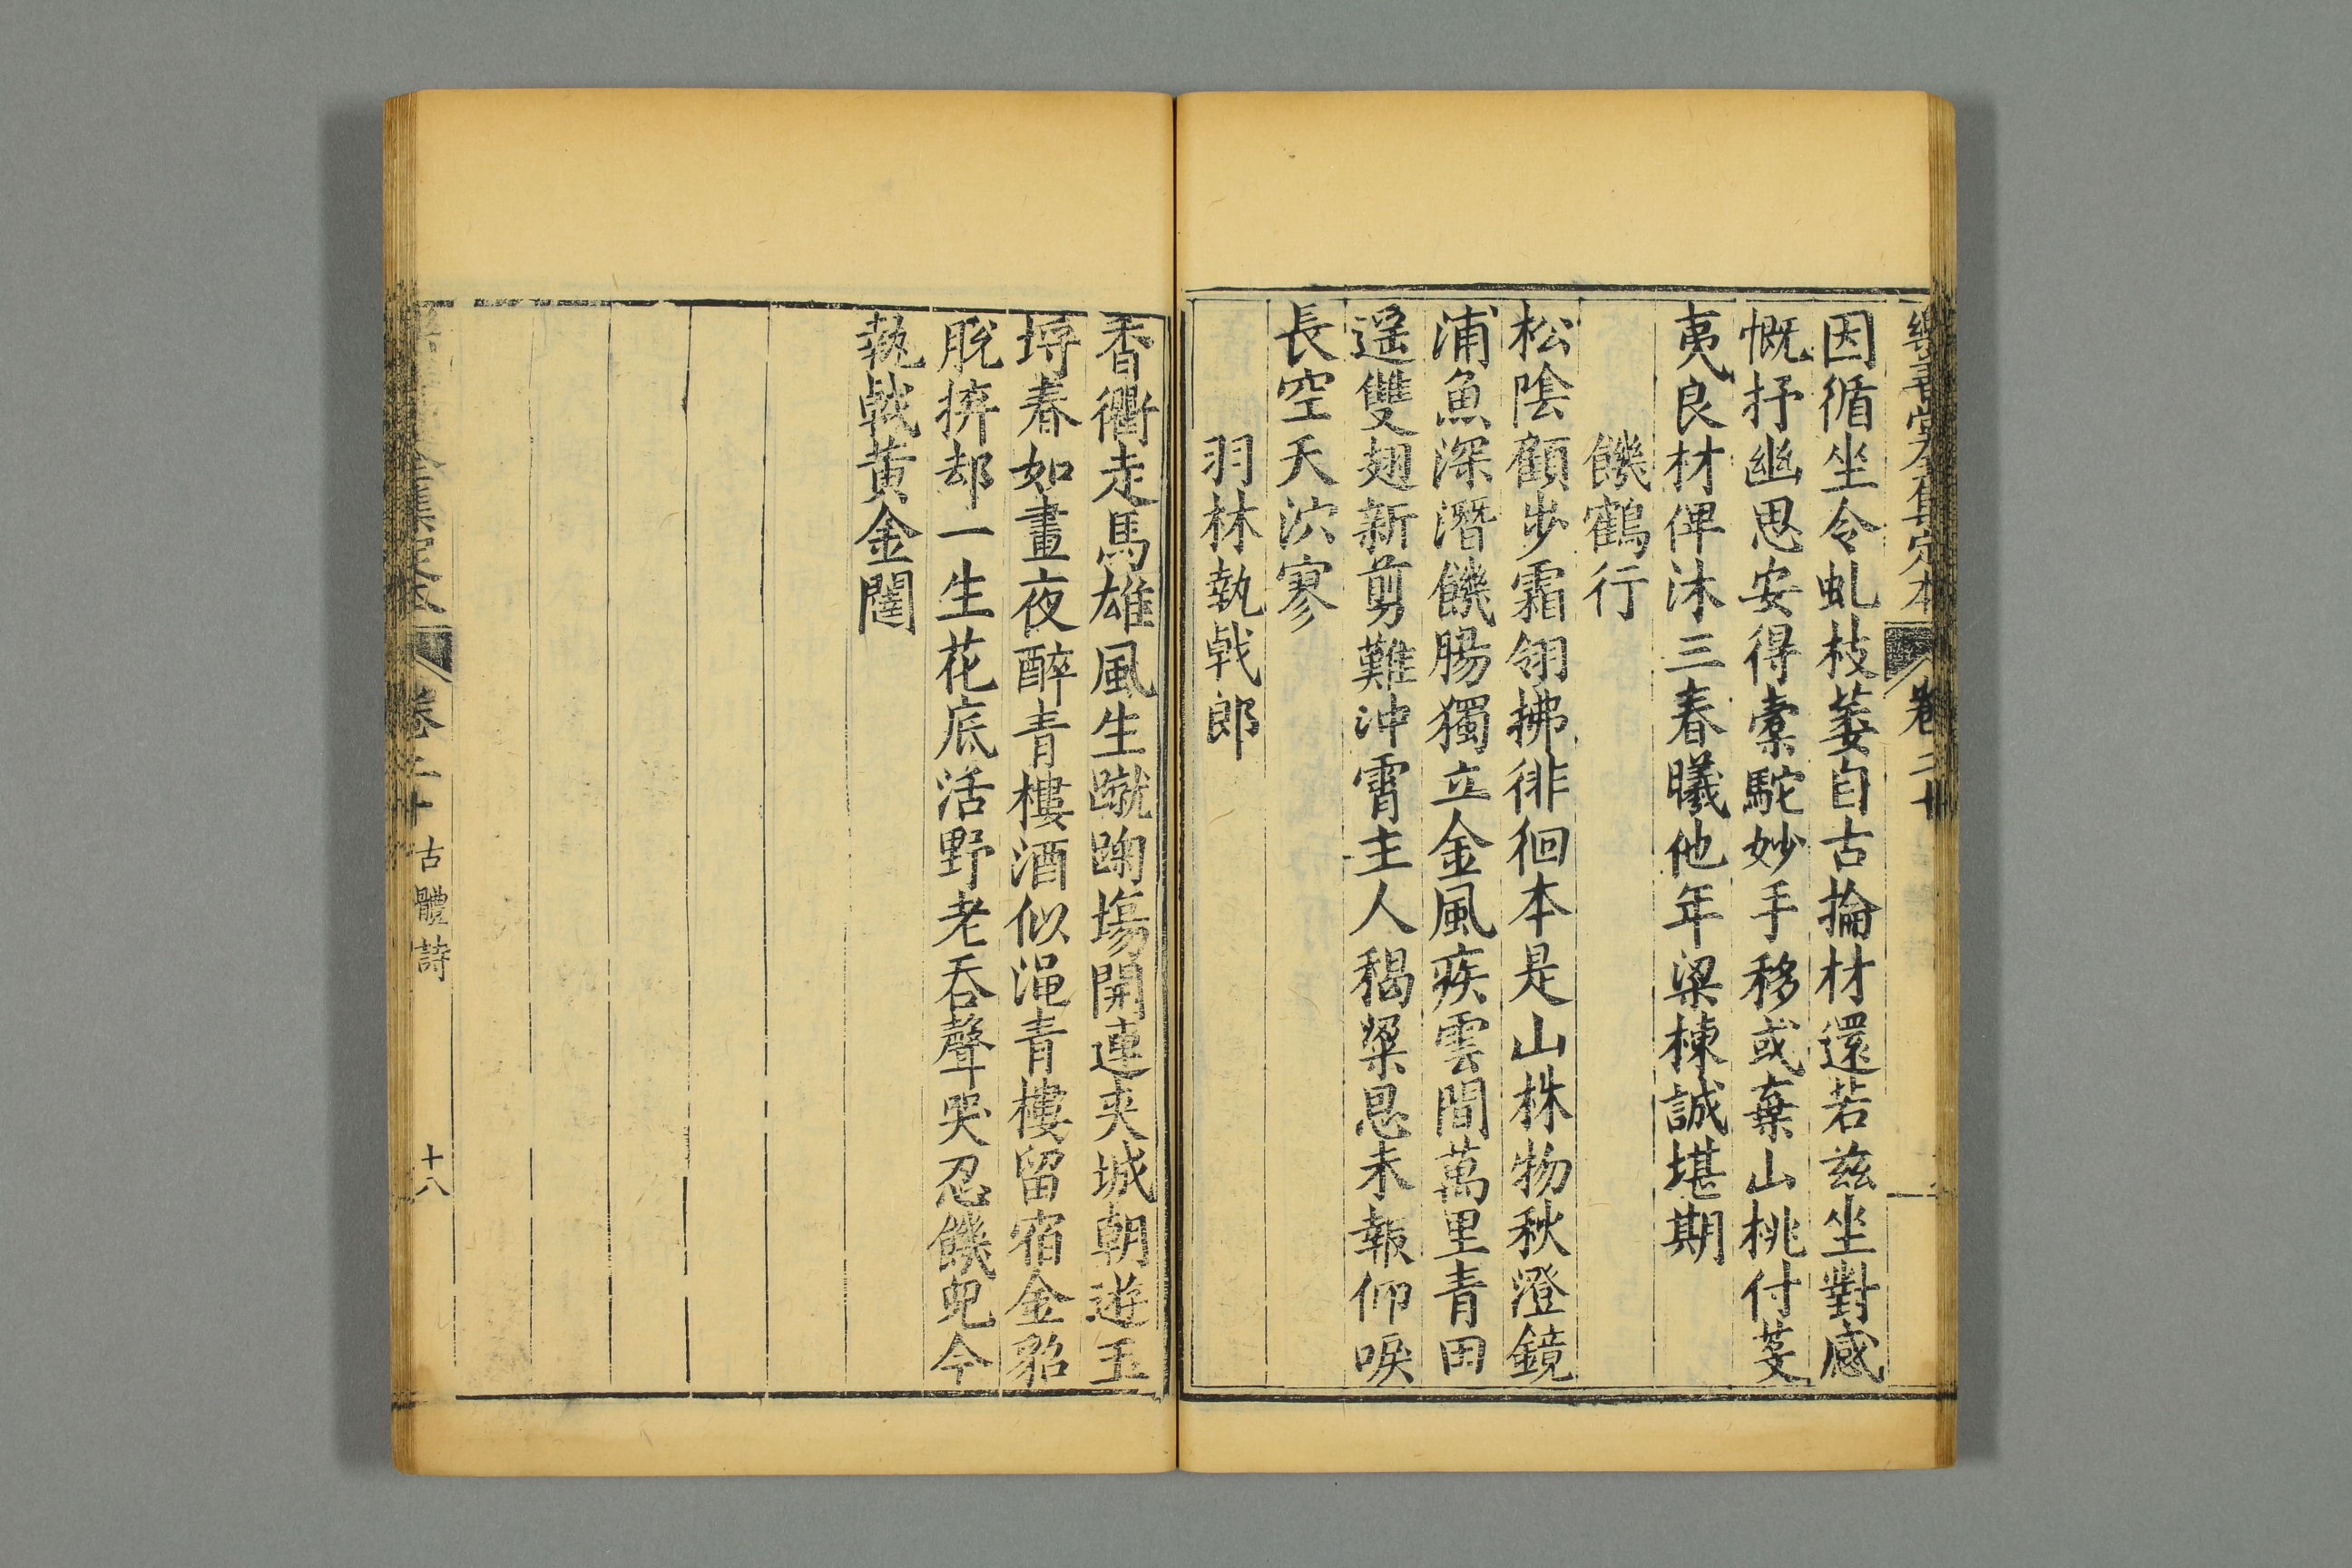 樂善堂全集定本
卷二十
因循坐令虬枝萎自古掄材還若茲坐對感
慨抒幽思安得橐駝妙手移或棄山桃付芟
夷良材俾沐三春曦他年梁棟誠堪期
饑鶴行
松陰顧步霜翎拂徘徊本是山林物秋澄鏡
浦魚深潛饑腸獨立金風疾雲間萬里青田
遥雙翅新剪難沖霄主人稻粱恩未報仰唳
長空天泬寥
羽林執戟郎
香衢走馬雄風生蹴踘場開連夾城朝遊玉
埒春如畫夜醉青樓酒似澠青樓留宿金貂
脫拚却一生花底活野老吞聲哭忍饑兒今
執戟黃金闥
卷二十 古體詩
十八